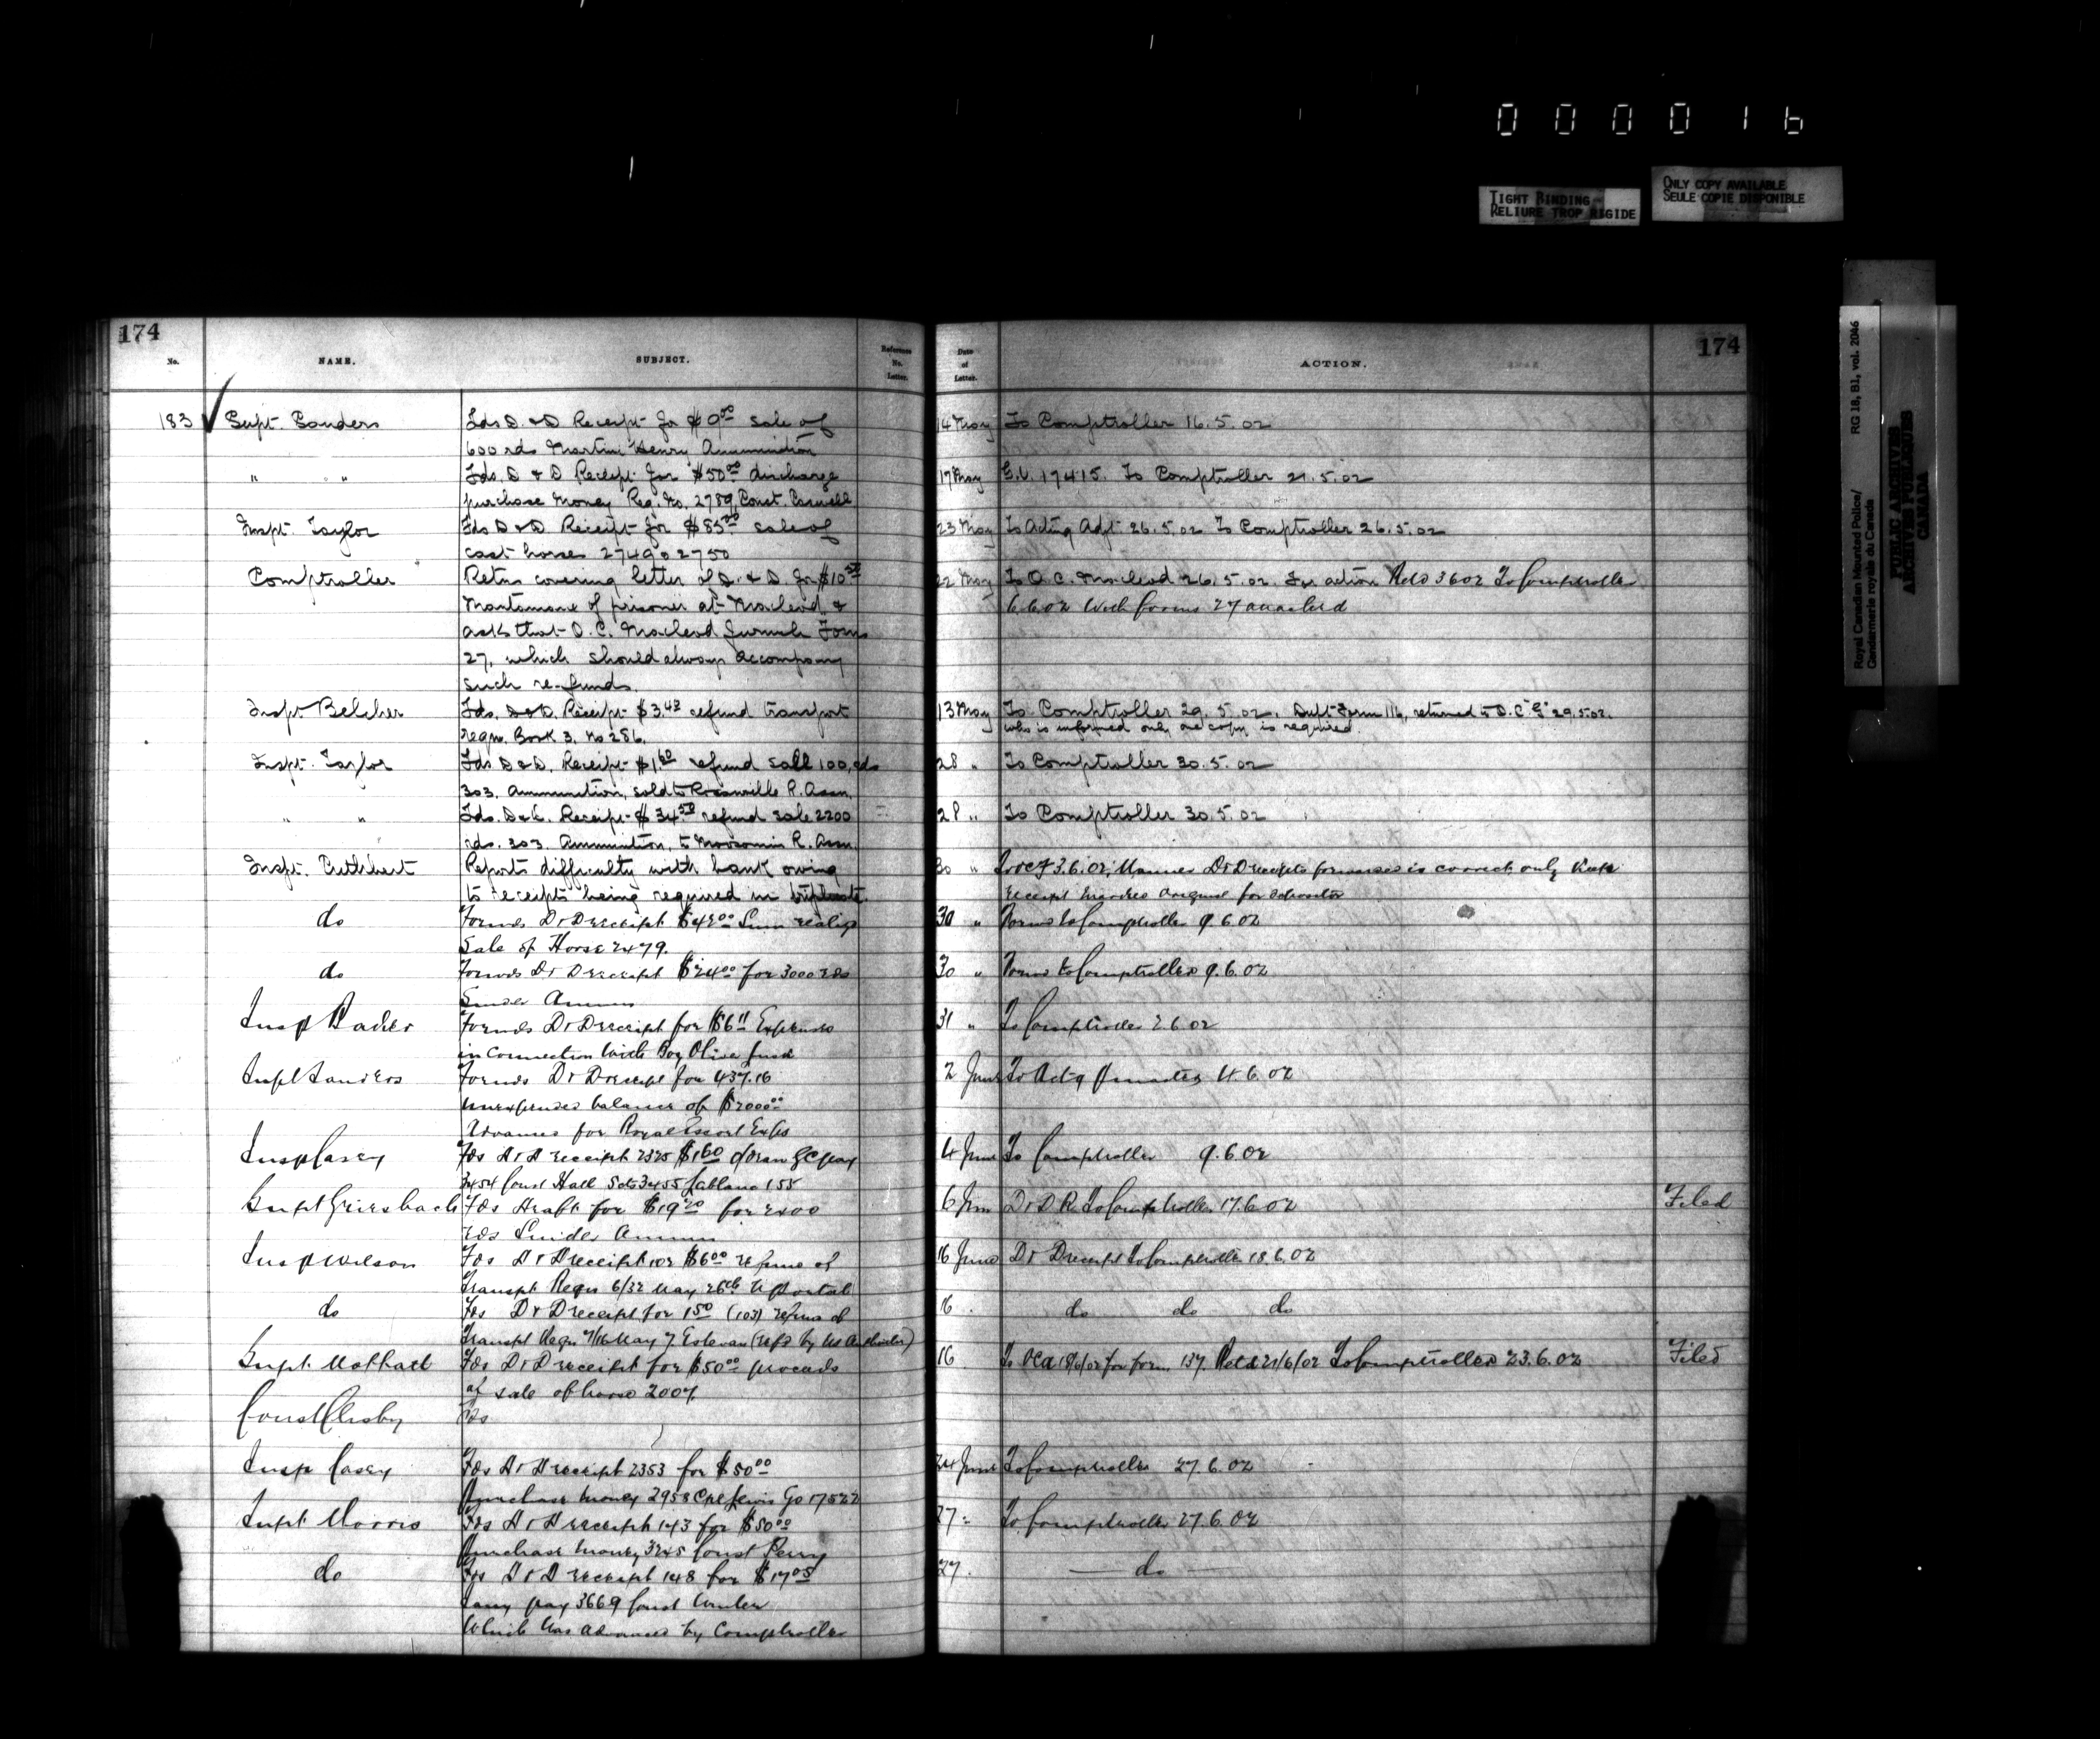 0 0 0 0 1 6
TIGHT BINDING
RELIURE TROP RIGIDE
ONLY COPY AVAILABLE
SEULE COPIE DISPONIBLE
Royal Canadian Mounted Police/
Gendarmerie royale du Canada
RG 18, B1, vol. 2046
PUBLIC ARCHIVES
ARCHIVES PUBLIQUES
CANADA
174
No.
NAME.
SUBJECT.
Reference No. Letter.
Date of Letter.
ACTION.
174
183 Supt. Sanders Fds D & D Receipt for $9.00 sale of 14 May To Comptroller 16.5.02
600 rds Martini Henry Ammunition
" " Fds. D & D Receipt for $50.00 discharge 17 May G.O. 17415. To Comptroller 21.5.02
purchase money Reg. No. 2789 Const.
Inspt. Taylor Fds D & D Receipt for $85.00 sale of 23 May To Acting Adjt. 26.5.02 To Comptroller 26.5.02
cast horses 2749 & 2750
Comptroller Retns covering letter of D. & D. for $10.50 22 May To O.C. Macleod 26.5.02. For action Retd 3 6 02 To Comptroller
Maintenance of prisoner at Macleod, & 6.6.02 With forms 27 attached
asks that O.C. Macleod furnish Form
27, which should always accompany
such re-funds.
Inspt Belcher Fds. D & D. Receipt $3.43 refund transport 13 May To Comptroller 29.5.02. Form 116, returned to O.C "G" 29.5.02.
reqn. Book 3. No 286. who is informed only one copy is required.
Inspt. Taylor Fds D & D. Receipt $1.60 refund sale 100 rds 28 " To Comptroller 30.5.02
303. Ammunition, sold to R. Assn.
" " Fds. D & D. Receipt $34.50 refund sale 2200 28 " To Comptroller 30.5.02
rds. 303. Ammunition, to Moosomin R. Assn.
Inspt. Cuthbert Reports difficulty with bank owing 30 " 3.6.02, Manner D & D receipts is correct only
to receipts being required in triplicate. receipt marked original for depositor
do Forwds D & D receipt $48.00 Sum 30 " Forwd to Comptroller 9.6.02
Sale of Horse 2479.
do Forwds D & D receipt $24.00 for 3000 rds 30 " Forwd to Comptroller 9.6.02
Snider Ammn
Insp Forwds D & D receipt for $6.11 Expended 31 " To Comptroller 2.6.02
in Connection with Boy Olive
Supt Sanders Forwds D & D receipt for 437.16 2 June To Actg 4.6.02
unexpended balance of $2000.00
Advances for Royal Escort Exps
Insp Casey Fds D & D receipt 2325 $1.60 pay 4 June To Comptroller 9.6.02
3454 Const Hall 3455 155
Supt Griesbach Fds Draft for $19.20 for 2400 6 June D & D R To Comptroller 17.6.02 Filed
rds Snider Ammn
Insp Wilson Fds D & D receipt 102 $6.00 refund of 16 June D & D receipt To Comptroller 18.6.02
Transpt Reqn 6/32 May 26th N Portal
do Fds D & D receipt for 1.50 (103) refund of 16 . do do do
Transpt Reqn 7/16 May 7 Estevan
Supt. Fds D & D receipt for $50.00 proceeds 16 for form 137. Retd 21/6/02 To Comptroller 23.6.02 Filed
of sale of horse 2007
Const Clisby Fds
Insp Casey Fds D & D receipt 2353 for $50.00 24 June To Comptroller 27.6.02
Purchase money 2958 Cpl Lewis GO 17522
Supt Morris Fds D & D receipt 143 for $50.00 27 " To Comptroller 27.6.02
Purchase money 3245 Const Perry
do Fds D & D receipt 148 for $17.05 27. do
pay 3669 Const
Which was advanced by Comptroller